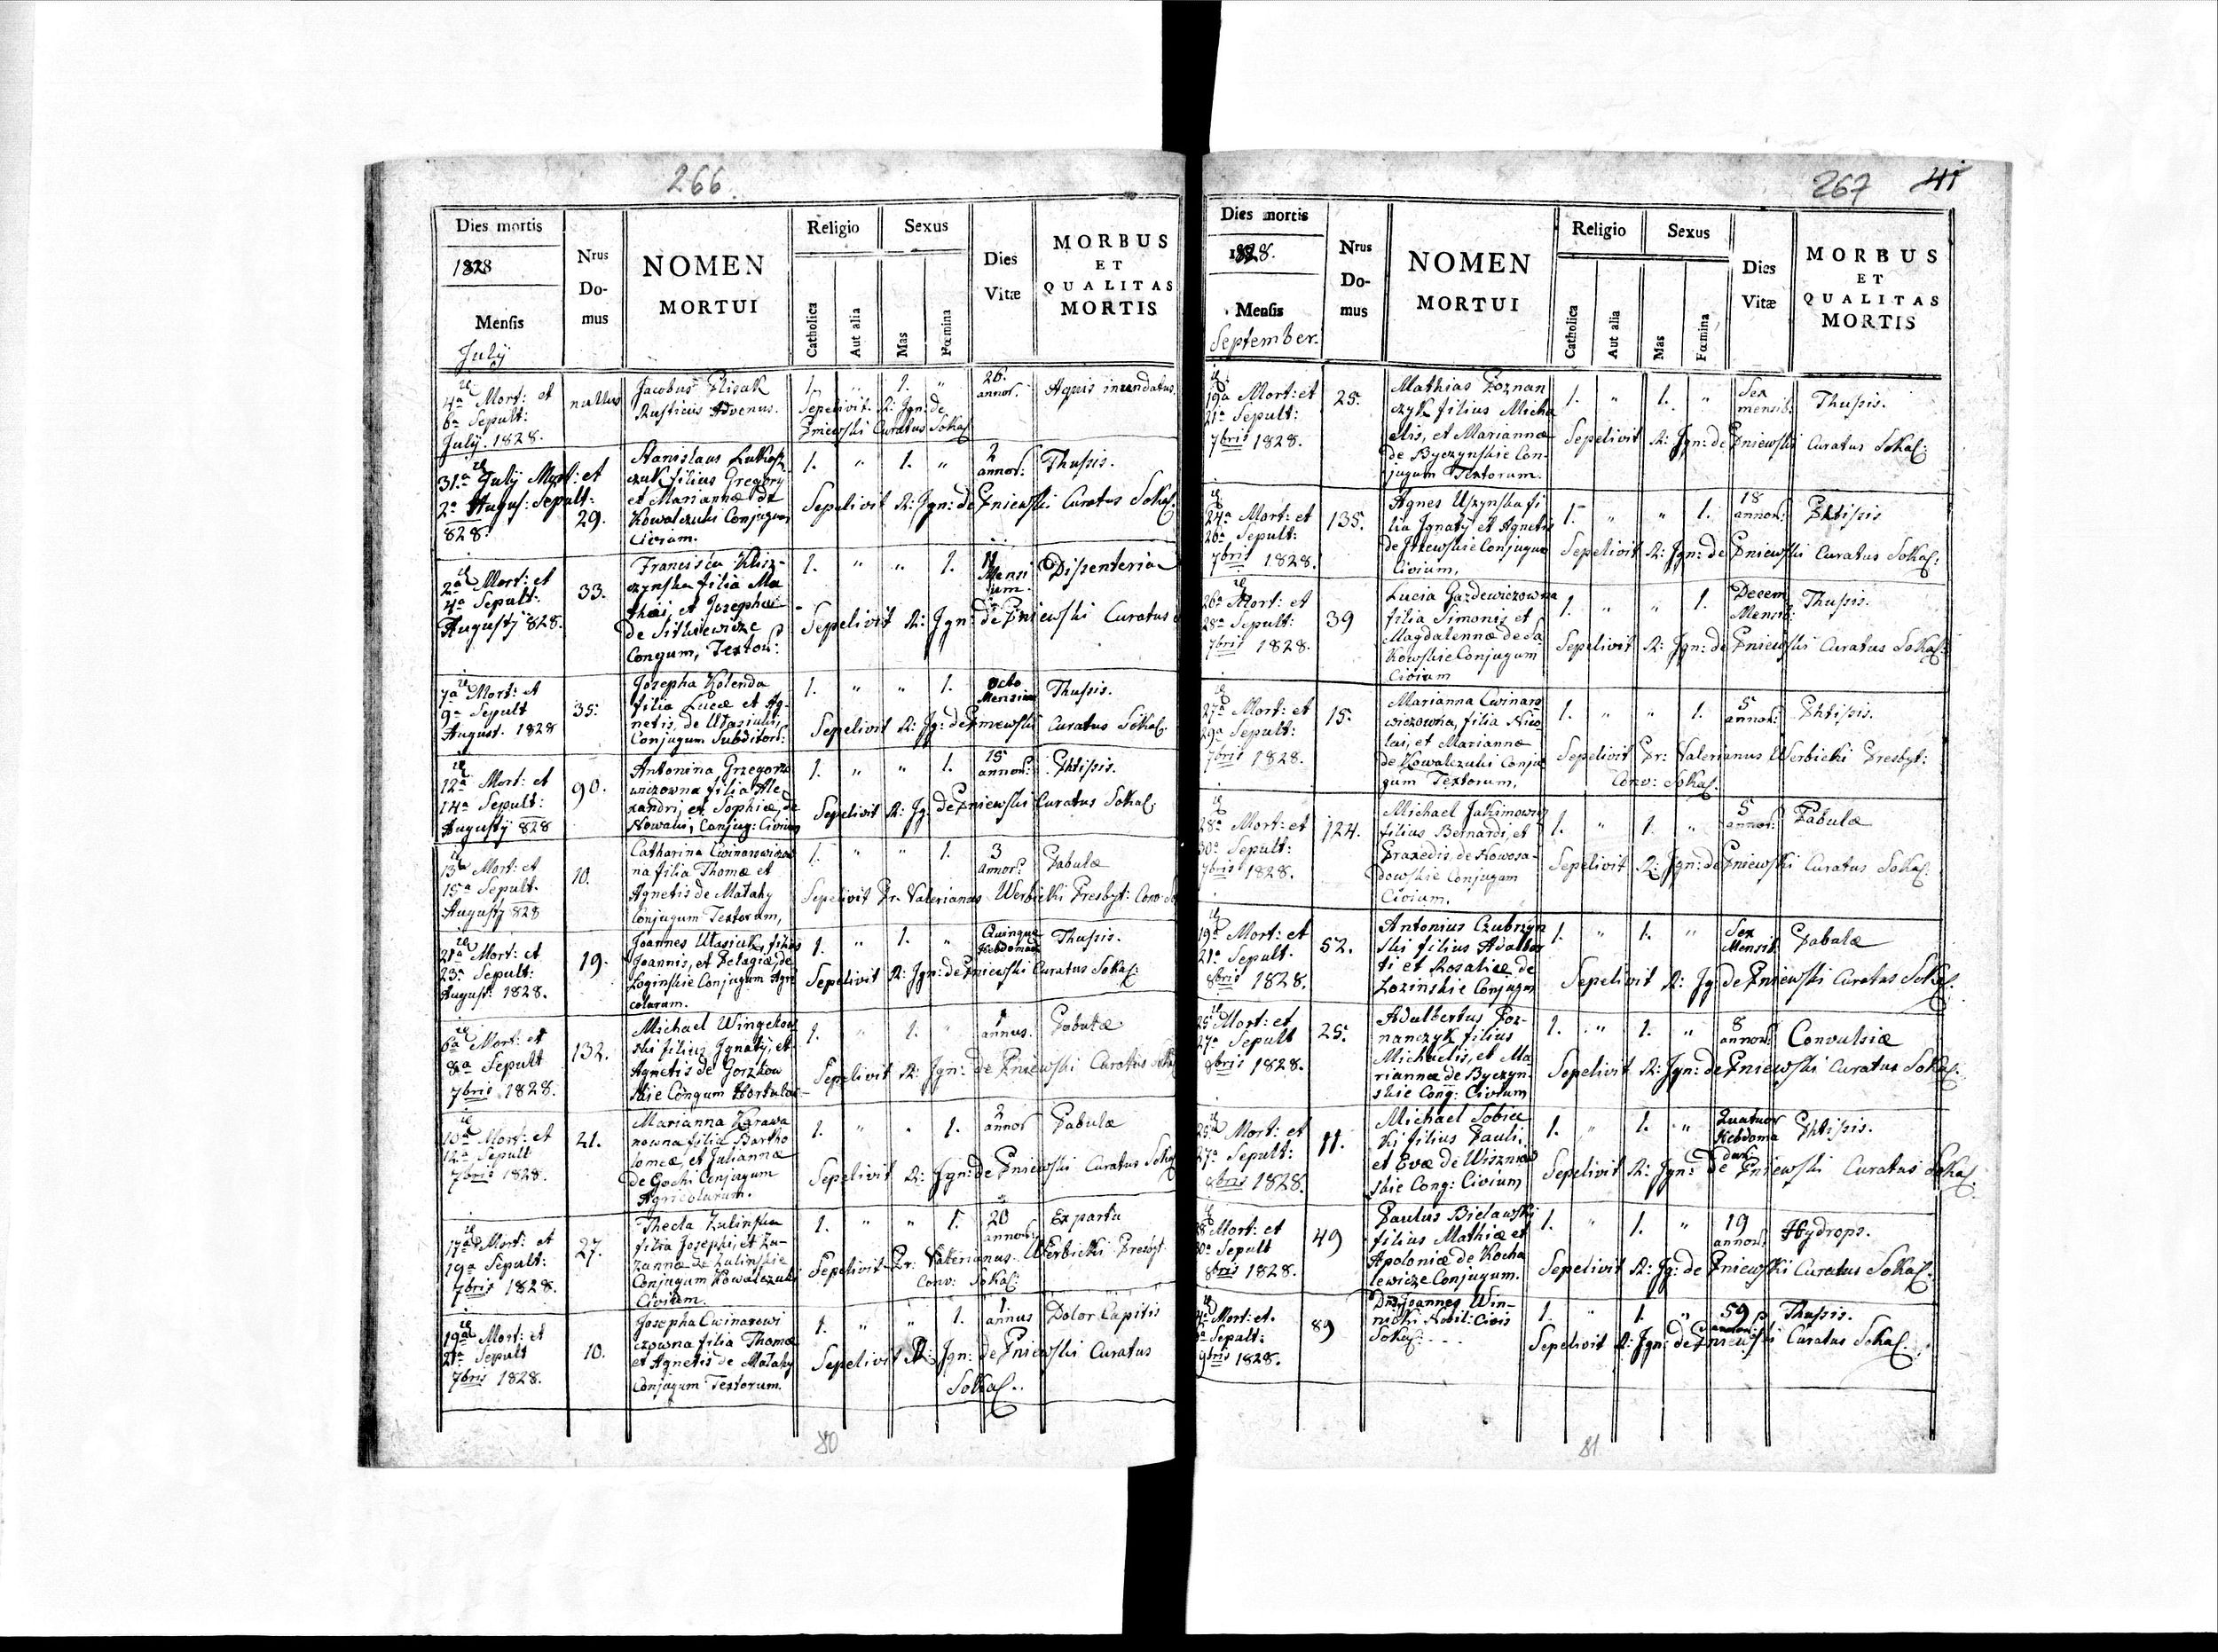 266.
Dies mortis
1828
Mensis
July
Nrus
Do-
mus
NOMEN
MORTUI
Religio
Catholica
Aut alia
Sexus
Mas
Fœmina
Dies
Vitæ
MORBUS
ET
QUALITAS
MORTIS
4a Mort: et
6a Sepult:
July. 1828.
nullus
Jacobus Plisak
Rusticus Advenus.
1. " 1. "
26.
annor.
Aquis inundatus
Sepelivit R: Ign: de
Pniewski Curatus Sokal
31a July Mort: et
2a Augus: Sepult:
828.
29.
Stanislaus Lutkosz
czuk filius Gregory
et Mariannæ de
Kowalczuki Conjugum
Civium.
1. " 1. "
2
annor:
Thussis.
Sepelivit R: Ign: de Pniewski Curatus Sokal:
2a Mort: et
4a Sepult:
Augusty 828.
33.
Francisca Klisz-
czynska filia Ma
thæi, et Josephæ
de Sitkiewicze
Congum, Textor:
1. " " 1.
11
Mensi
um.
Dissenteria
Sepelivit R: Ign: de Pniewski Curatus
7a Mort: et
9a Sepult
August. 1828
35.
Josepha Kolenda
filia Lucæ et Ag-
netis, de Utasiuki,
Conjugum Subditor:
1. " " 1.
octo
Mensium
Thussis.
Sepelivit R: Ig: de Pniewski Curatus Sokal:
12a Mort: et
14a Sepult:
Augusty 828
90.
Antonina Grzegorze
wiczowna filia Ale
xandri, et Sophiæ, de
Nowaki, Conjug: Civium
1. " " 1.
15
annor:
Phtisis.
Sepelivit R: Ig: de Pniewski Curatus Sokal:
13a Mort: et
15a Sepult.
Augusty 828
10.
Catharina Cwinarowiczow
na filia Thomæ et
Agnetis de Matahy
Conjugum Textorum,
1. " " 1.
3
annor:
Pabulæ
Sepelivit Pr. Valerianus Werbicki Presbyt: Conv: So
21a Mort: et
23a Sepult:
August: 1828.
19.
Joannes Utasiuk, filius
Joannis, et Pelagiæ, de
Loginskie Conjugum Agri
colarum.
1. " 1. "
Quinque
Hebdomad
Thussis.
Sepelivit R: Ign: de Pniewski Curatus Sokal:
6a Mort: et
8a Sepult
7bris 1828.
132.
Michael Wingelow
ski filius Ignaty, et
Agnetis de Gorzkow
skie Congum Hortulor
1. " 1. "
1
annus.
Pabulæ
Sepelivit R: Ign: de Pniewski Curatus Sokal
10a Mort: et
12a Sepult
7bris 1828.
21.
Marianna Karawa
nowna filia Bartho
lomeæ, et Juliannæ
de Gocki Conjugum
Agricolarum.
1. " " 1.
2
annor
Pabulæ
Sepelivit R: Ign: de Pniewski Curatus Sokal
17a Mort: et
19a Sepult:
7bris 1828.
27.
Thecla Zulinska
filia Josephi, et Zu-
zannæ de Zulinskie
Conjugum Kowalczuki
Civium.
1. " " 1.
20
annor:
Ex partu
Sepelivit Pr: Valerianus Werbicki Presbyt.
Conv: Sokal:
19a Mort: et
21a Sepult
7bris 1828.
10.
Josepha Cwinarowi
czowna filia Thomæ
et Agnetis de Matahy
Conjugum Textorum.
1. " " 1.
1
annus
Dolor Capitis
Sepelivit R: Ign: de Pniewski Curatus
Sokal:.
80
267 41
Dies mortis
1828.
Mensis
September.
Nrus
Do-
mus
NOMEN
MORTUI
Religio
Catholica
Aut alia
Sexus
Mas
Fœmina
Dies
Vitæ
MORBUS
ET
QUALITAS
MORTIS
19a Mort: et
21a Sepult:
7bris 1828.
25.
Mathias Poznan
czyk filius Micha
elis, et Mariannæ
de Byczynskie Con-
jugum Textorum.
1. " 1. "
Sex
mensib:
Thussis.
Sepelivit R: Ign: de Pniewski Curatus Sokal:
24a Mort: et
26a Sepult:
7bris 1828.
135.
Agnes Uszynska fi
lia Ignaty et Agnetis
de Itzewskie Conjugum
Civium,
1. " " 1.
18
annor:
Phtisis
Sepelivit R: Ign: de Pniewski Curatus Sokal:
26a Mort: et
28a Sepult:
7bris 1828.
39
Lucia Gazdewiczowna
filia Simonis et
Magdalennæ de Sa
kowskie Conjugum
Civium
1. " " 1.
Decem
Mensib:
Thussis.
Sepelivit R: Ign: de Pniewski Curatus Sokal:
27a Mort: et
29a Sepult:
7bris 1828.
15.
Marianna Cwinaro
wiczowna, filia Nico
lai, et Mariannæ
de Kowalczuki Conju
gum Textorum,
1. " " 1.
5
annor:
Phtisis.
Sepelivit Pr: Valerianus Werbicki Presbyt:
Conv: Sokal.
28a Mort: et
30a Sepult:
7bris 1828.
124.
Michael Jakimowicz
filius Bernardi, et
Praxedis, de Nowosa-
dowskie Conjugum
Civium.
1. " 1. "
5
annor:
Pabulæ
Sepelivit R: Ign: de Pniewski Curatus Sokal:
19a Mort: et
21a Sepult.
8bris 1828.
52.
Antonius Czubryn
ski filius Adalber
ti et Rosaliæ de
Lozinskie Conjugum
1. " 1. "
Sex
Mensib.
Pabulæ
Sepelivit R: Ig: de Pniewski Curatus Sokal.
25a Mort: et
27a Sepult
8bris 1828.
25.
Adalbertus Poz-
nanczyk filius
Michaelis, et Ma
riannæ de Byczyn-
skie Cong: Civium
1. " 1. "
8
annor:
Convulsiæ
Sepelivit R: Ign: de Pniewski Curatus Sokal.
25a Mort: et
27a Sepult:
8bris 1828.
11.
Michael Sobiec
ki filius Pauli,
et Evæ de Wiszniow
skie Cong: Civium
1. " 1. "
Quatuor
Hebdoma
dar:
Phtisis.
Sepelivit R: Ign: de Pniewski Curatus Sokal.
28 Mort: et
30a Sepult
8bris 1828.
49
Paulus Bielawski
filius Mathiæ et
Apoloniæ de Kocha
lewicze Conjugum.
1. " 1. "
19
annor:
Hydrops.
Sepelivit R: Ig: de Pniewski Curatus Sokal:
Mort: et.
Sepult:
9bris 1828.
89
Dns Joannes Win-
nicki Nobil: Civis
Sokal: - - -
1. " 1. "
59
annor:
Thussis.
Sepelivit R: Ign: de Pniewski Curatus Sokal.
81